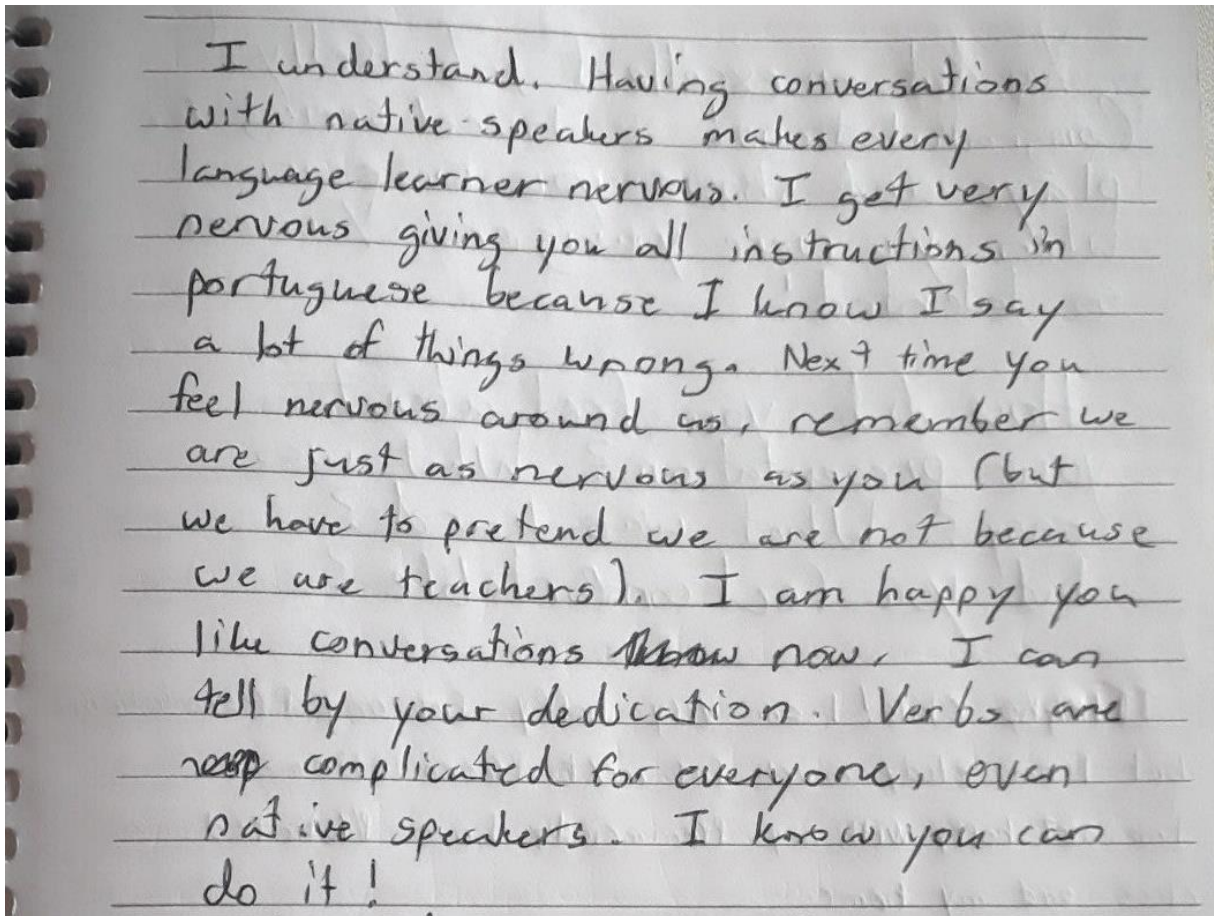 I understand. Having conversations
with native speakers makes every
language learner nervous. I get very
nervous giving you all instructions in
portuguese because I know I say
a lot of things wrong. Next time you
feel nervous around us, remember we
are just as nervous as you (but
we have to pretend we are not because
we are teachers). I am happy you
like conversations now. I can
tell by your dedication. Verbs are
complicated for everyone, even
native speakers. I know you can
do it!